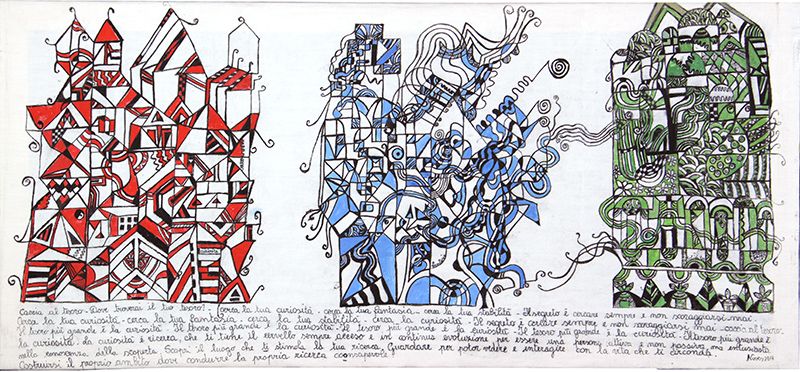 Caccia al tesoro. Dove troverai il tuo tesoro? cerca la tua curiosità. cerca la tua fantasia... cerca la tua stabilità. Il segreto è cercare sempre e non scoraggiarsi mai.
Cerca la tua curiosità, cerca la tua fantasia, cerca la tua stabilità, cerca la curiosità. Il segreto è cercare sempre, e non scoraggiarsi mai caccia al tesoro.
Il tesoro più grande è la curiosità. Il tesoro più grande è la curiosità. Il tesoro più grande è la curiosità. Il tesoro più grande è la curiosità. Il tesoro più grande è
la curiosità. La curiosità è ricerca, che ti tiene il cervello sempre acceso e in continua evoluzione per essere una persona attiva e non passiva, ma entusiasta
nelle della scoperta. Scopri il luogo che ti stimola la tua ricerca. Guardare per poter vedere e interagire con la vita che ti circonda.
Costruirsi il proprio ambito dove condurre la propria ricerca consapevole!